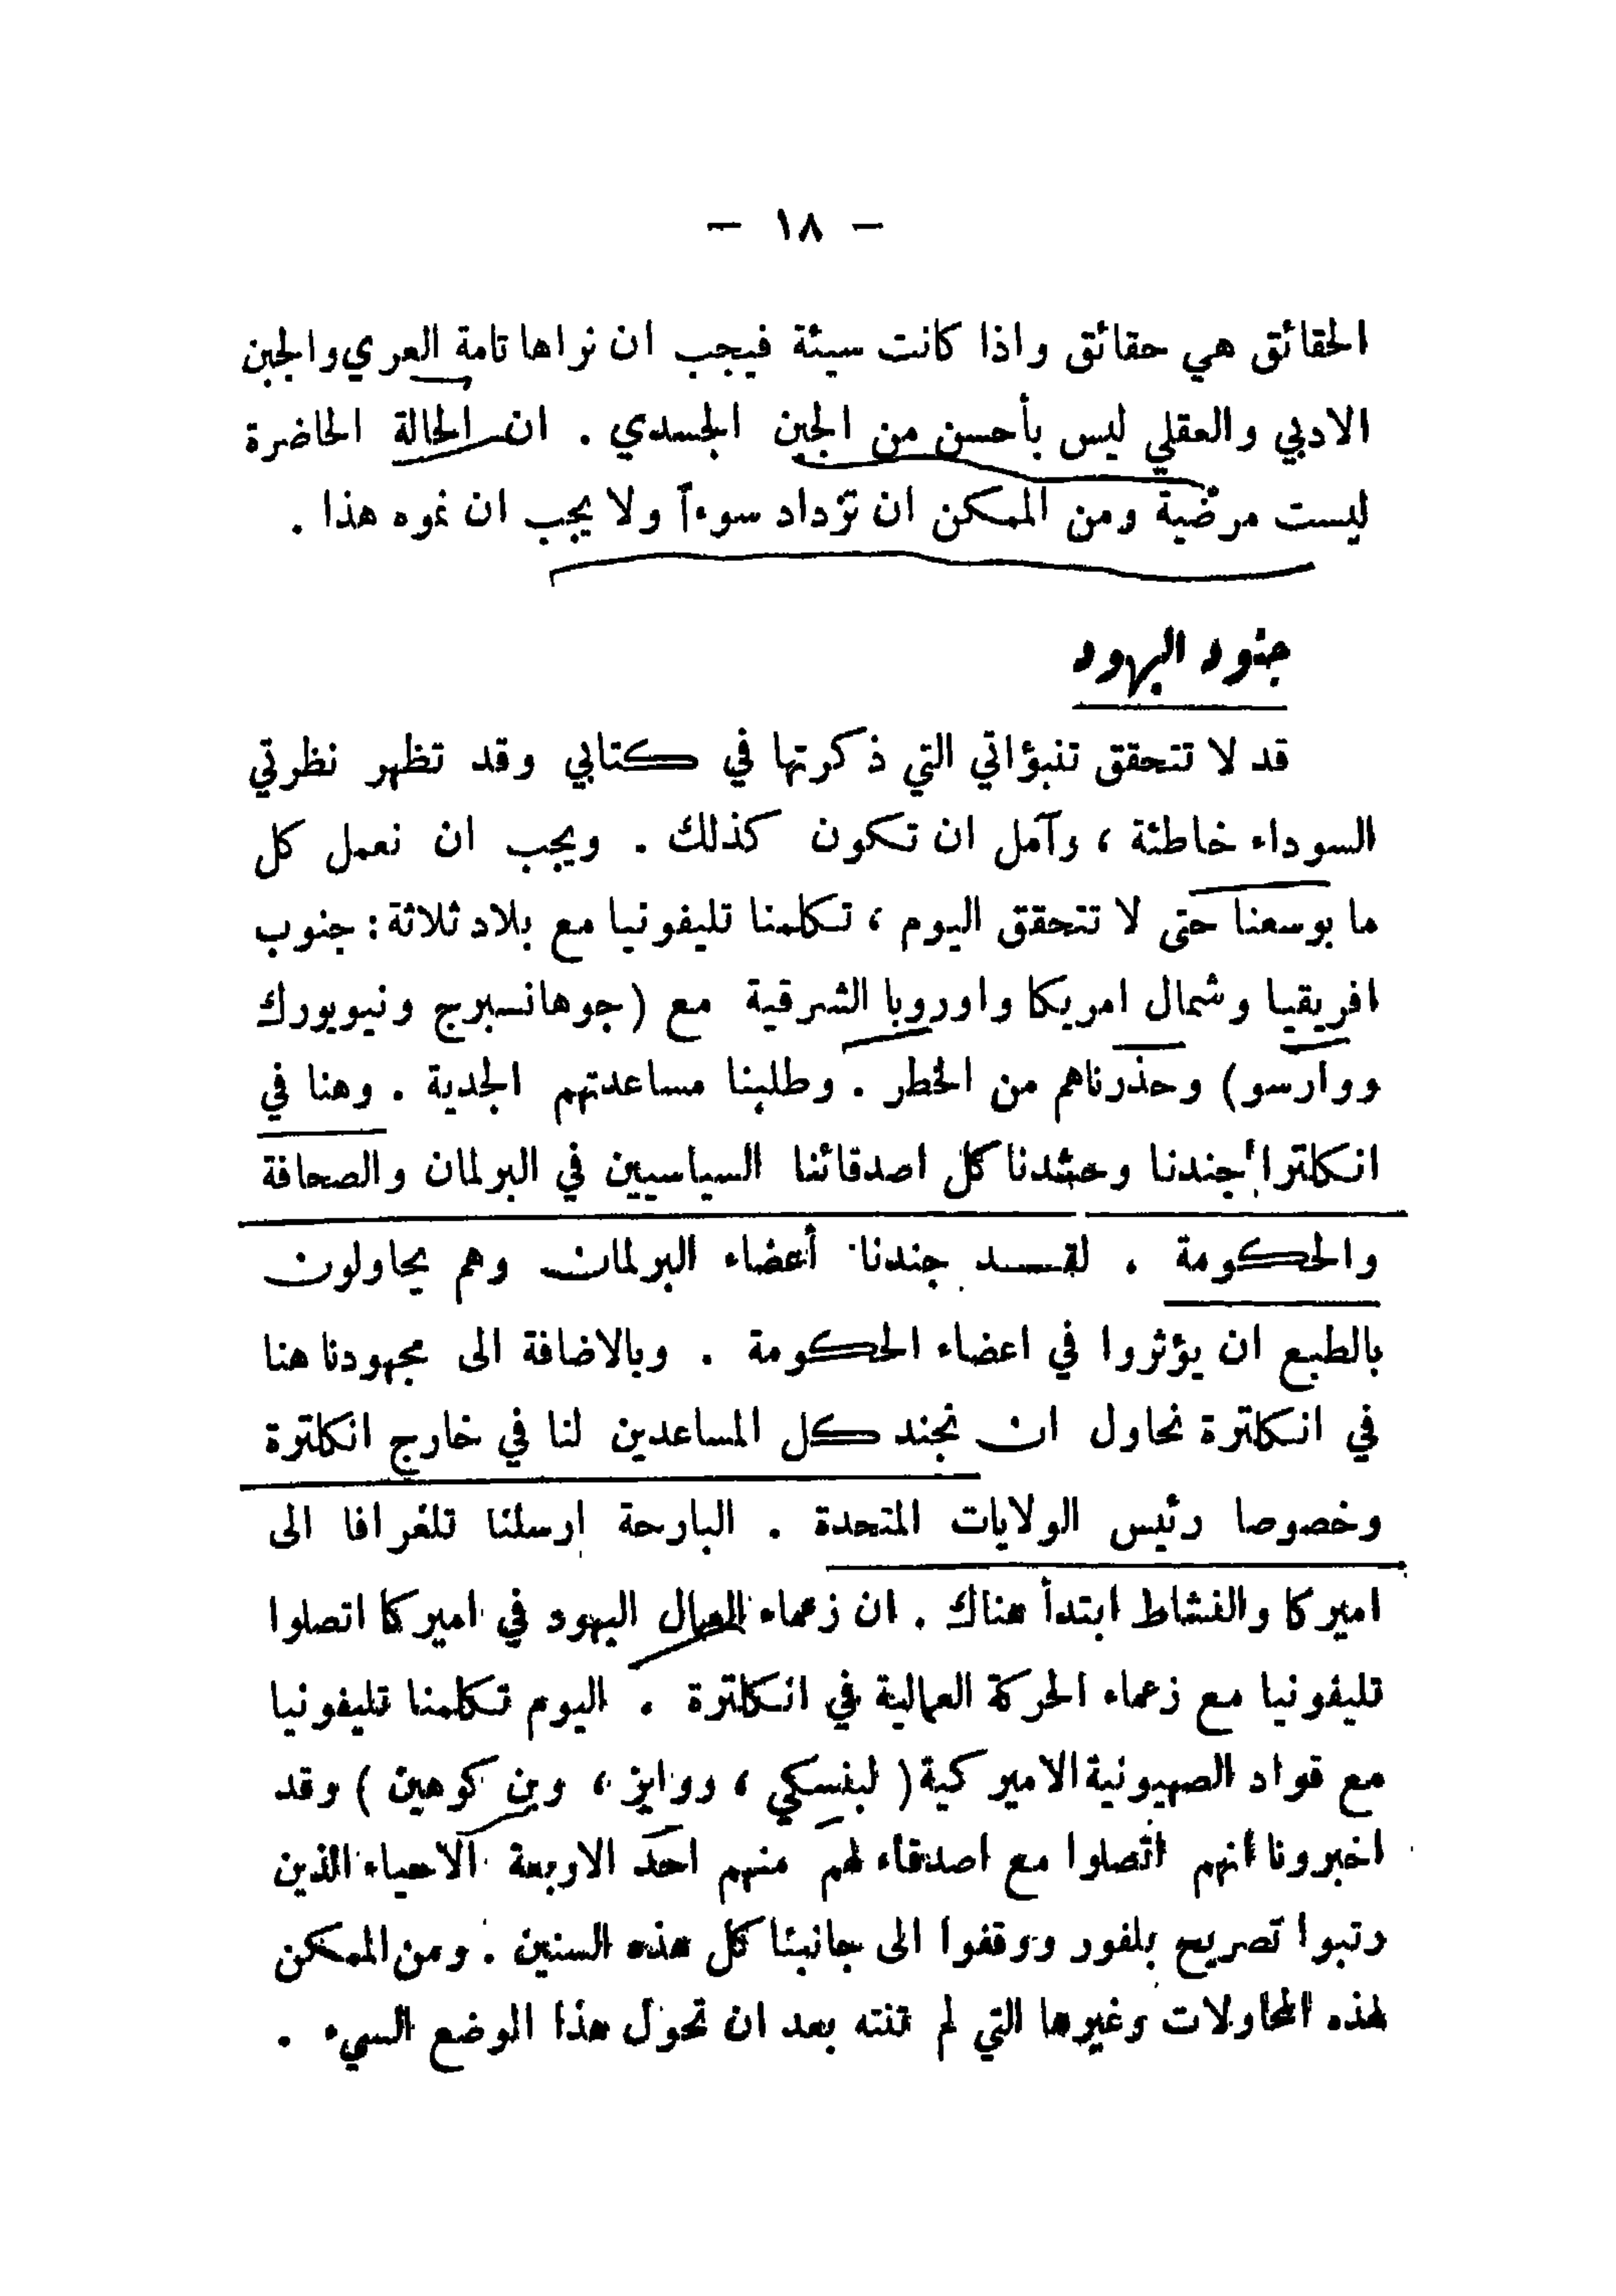 — ١٨ —
الحقائق هي حقائق واذا كانت سيئة فيجب ان نراها تامة العري والجبن
الادبي والعقلي ليس بأحسن من الجبن الجسدي . ان الحالة الحاضرة
ليست مرضية ومن الممكن ان تزداد سوءاً ولا يجب ان نموه هذا .
جنود اليهود
قد لا تتحقق تنبؤاتي التي ذكرتها في كتابي وقد تظهر نظرتي
السوداء خاطئة ، وآمل ان تكون كذلك . ويجب ان نعمل كل
ما بوسعنا حتى لا تتحقق اليوم ، تكلمنا تليفونيا مع بلاد ثلاثة : جنوب
افريقيا وشمال امريكا واوروبا الشرقية مع (جوهانسبرج ونيويورك
ووارسو) وحذرناهم من الخطر . وطلبنا مساعدتهم الجدية . وهنا في
انكلترا جندنا وحشدنا كل اصدقائنا السياسيين في البرلمان والصحافة
والحكومة . لقد جندنا أعضاء البرلمان وهم يحاولون
بالطبع ان يؤثروا في اعضاء الحكومة . وبالاضافة الى مجهودنا هنا
في انكلترة نحاول ان نجند كل المساعدين لنا في خارج انكلترة
وخصوصا رئيس الولايات المتحدة . البارحة ارسلنا تلغرافا الى
اميركا والنشاط ابتدأ هناك . ان زعماء العمال اليهود في اميركا اتصلوا
تليفونيا مع زعماء الحركة العمالية في انكلترة . اليوم تكلمنا تليفونيا
مع قواد الصهيونية الاميركية ( لبنسكي ، ووايز ، وبن كوهين ) وقد
اخبرونا انهم اتصلوا مع اصدقاء لهم منهم احد الاربعة الاحياء الذين
رتبوا تصريح بلفور ووقفوا الى جانبنا كل هذه السنين . ومن الممكن
لهذه المحاولات وغيرها التي لم تنته بعد ان تحول هذا الوضع السيء .